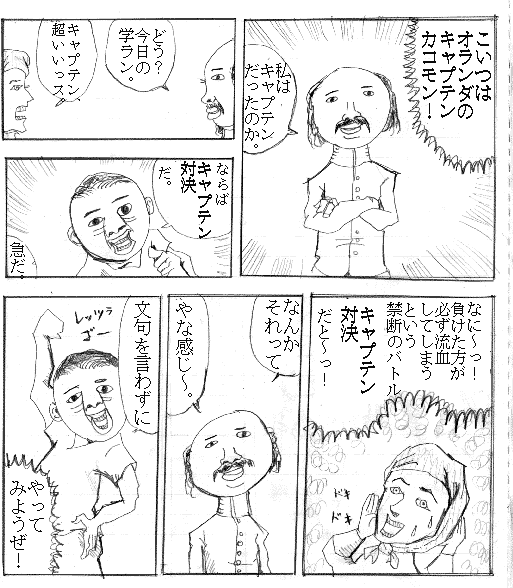 こいつは
オランダの
キャプテン
カコモン！
私は
キャプテン
だったのか。
どう？
今日の
学ラン。
キャプテン、
超いいっス
ならば
キャプテン
対決
だ。
急だ。
なに〜っ！
負けた方が
必ず流血
してしまう
という
禁断のバトル
キャプテン
対決
だと〜っ！
ドキ
ドキ
なんか
それって
やな感じ〜。
文句を言わずに
レッツぅ
ゴー
やって
みようぜ！